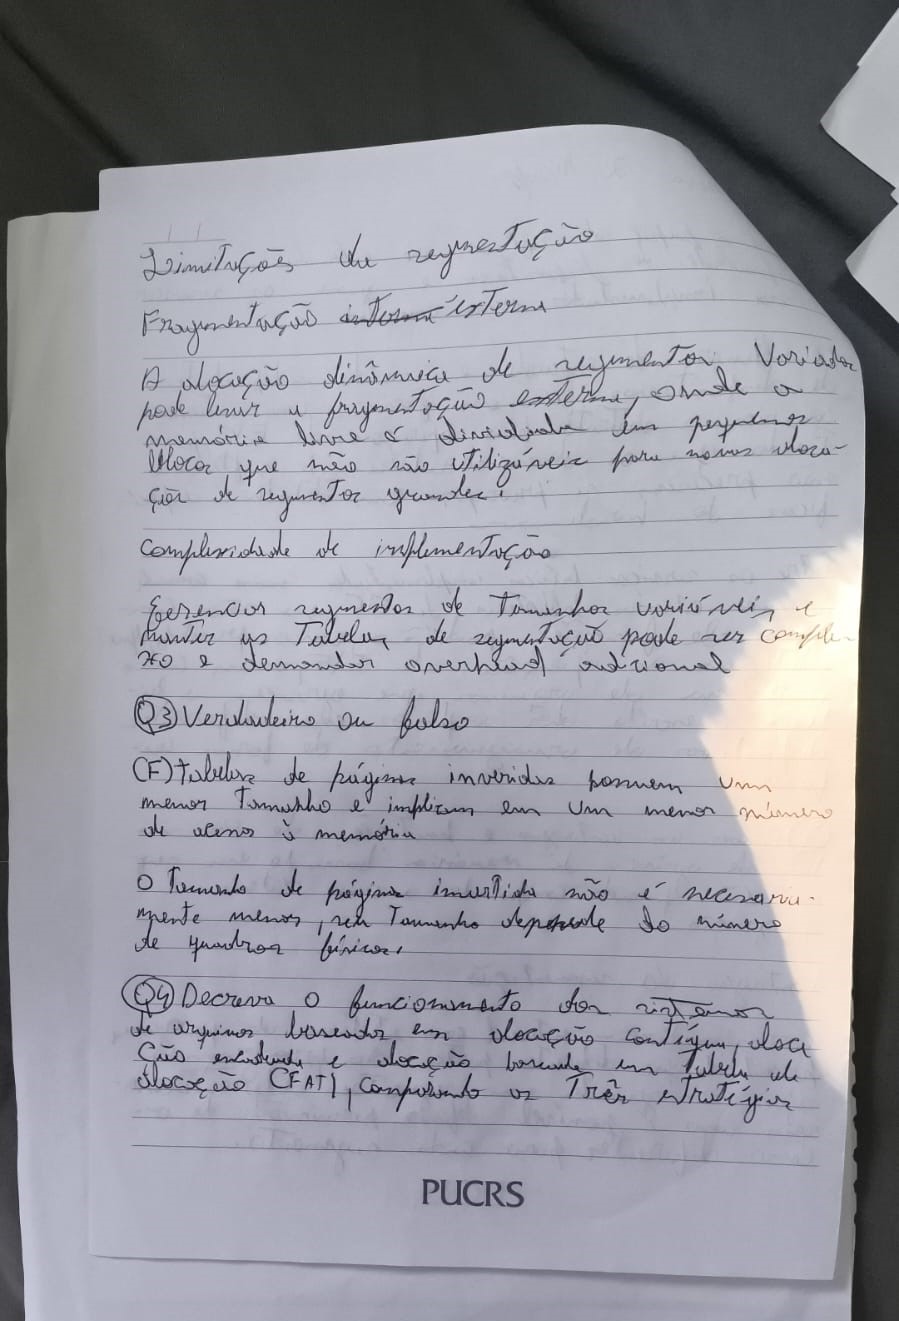 Limitações da segmentação
Fragmentação interna externa
A alocação dinâmica de segmentos variados
pode levar a fragmentação externa, onde a
memória livre é dividida em pequenos
blocos que não são utilizáveis para novas aloca-
ções de segmentos grandes.
Complexidade de implementação
Gerenciar segmentos de tamanhos variáveis e
manter as tabelas de segmentação pode ser comple-
xo e demandar overhead adicional
Q3) Verdadeiro ou falso
(F) tabelas de páginas invertidas possuem um
menor tamanho e implicam em um menor número
de acesso à memória
O tamanho de página invertida não é necessaria-
mente menor, seu tamanho depende do número
de quadros físicos.
Q4) Descreva o funcionamento dos sistemas
de arquivos baseados em alocação contígua, aloca
ção encadeada e alocação baseada em tabela de
alocação (FAT), comparando as três estratégias
PUCRS